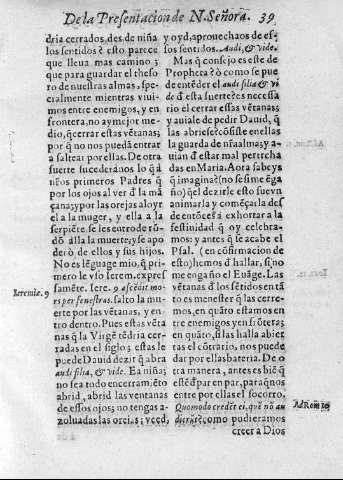 De la Presentacion de N. Señora. 39
dria cerrados, des. de niña
los sentidos? esto parece
que lleua mas camino;
que para guardar el theso
ro de nuestras almas, spe-
cialmente mientras viui-
mos entre enemigos, y en
frontera, no ay mejor me-
dio, q̃ cerrar estas vẽtanas;
por q̃ no nos puedã entrar
a saltear por ellas. De otra
fuerte sucederànos lo q̃ à
nr̃os primeros Padres q̃
por los ojos al ver d̃ la mã
çana; y por las orejas al oyr
el a la muger, y ella a la
serpiẽte. se les entro de rõ-
dõ alla la muerte, y se apo
derò de ellos y sus hijos.
No es lẽguage mio, q̃ pri-
mero le vso Ierem. expres
samẽte. Iere. 9 ascẽdit mo-
rs per fenestras. salto la mue
rte por las vẽtanas, y en-
tro dentro. Pues estas vẽta
nas q̃ la Virgẽ tẽdria cer-
radas en el siglo; estas le
puede Dauid dezir q̃ abra
audi filia, & vide. Ea niña;
no sea todo encerramiẽto
abrid, abrid las ventanas
de essos ojos; no tengas a-
zoluadas las orejas; veed,
Ieremiæ. 9
y oyd, aprouechaos de es-
sos sentidos. Audi, & vide.
Mas q̃ consejo es este de
Propheta? ò como se pue
de entẽder el audi filia & vi
de d̃ esta suerte? es necessa
rio el cerrar essas vẽtanas;
y auiale de pedir Dauid, q̃
las abriesse?
la guarda de nr̃a alma; y a-
en Maria. Aora sabeys
q̃ imagino?
q̃ el dezirle esto fue
animarla y comẽçarla des
de entõces à exhortar a la
festiuidad q̃ oy celebra-
mos: y antes q̃ se acabe el
Psal. (en cõfirmacion de
esto) hemos d̃ hallar, si no
me engaño el Euãge. Las
vẽtanas d̃ los sẽtidos en tã
to es menester q̃ las cerre-
mos, en quãto estamos en
tre enemigos y en frõtera;
en quãto, si las halla abier
tas el cõtrario, nos puede
dar por ellas bateria. De o
tra manera, antes es biẽ q̃
estẽ d̃ par en par, para q̃ nos
entre por ellas el socorro.
Quomodo credẽt ei, quẽ nõ au
dierũt? como pudieramos
creer a Dios
Ad Rom. 10